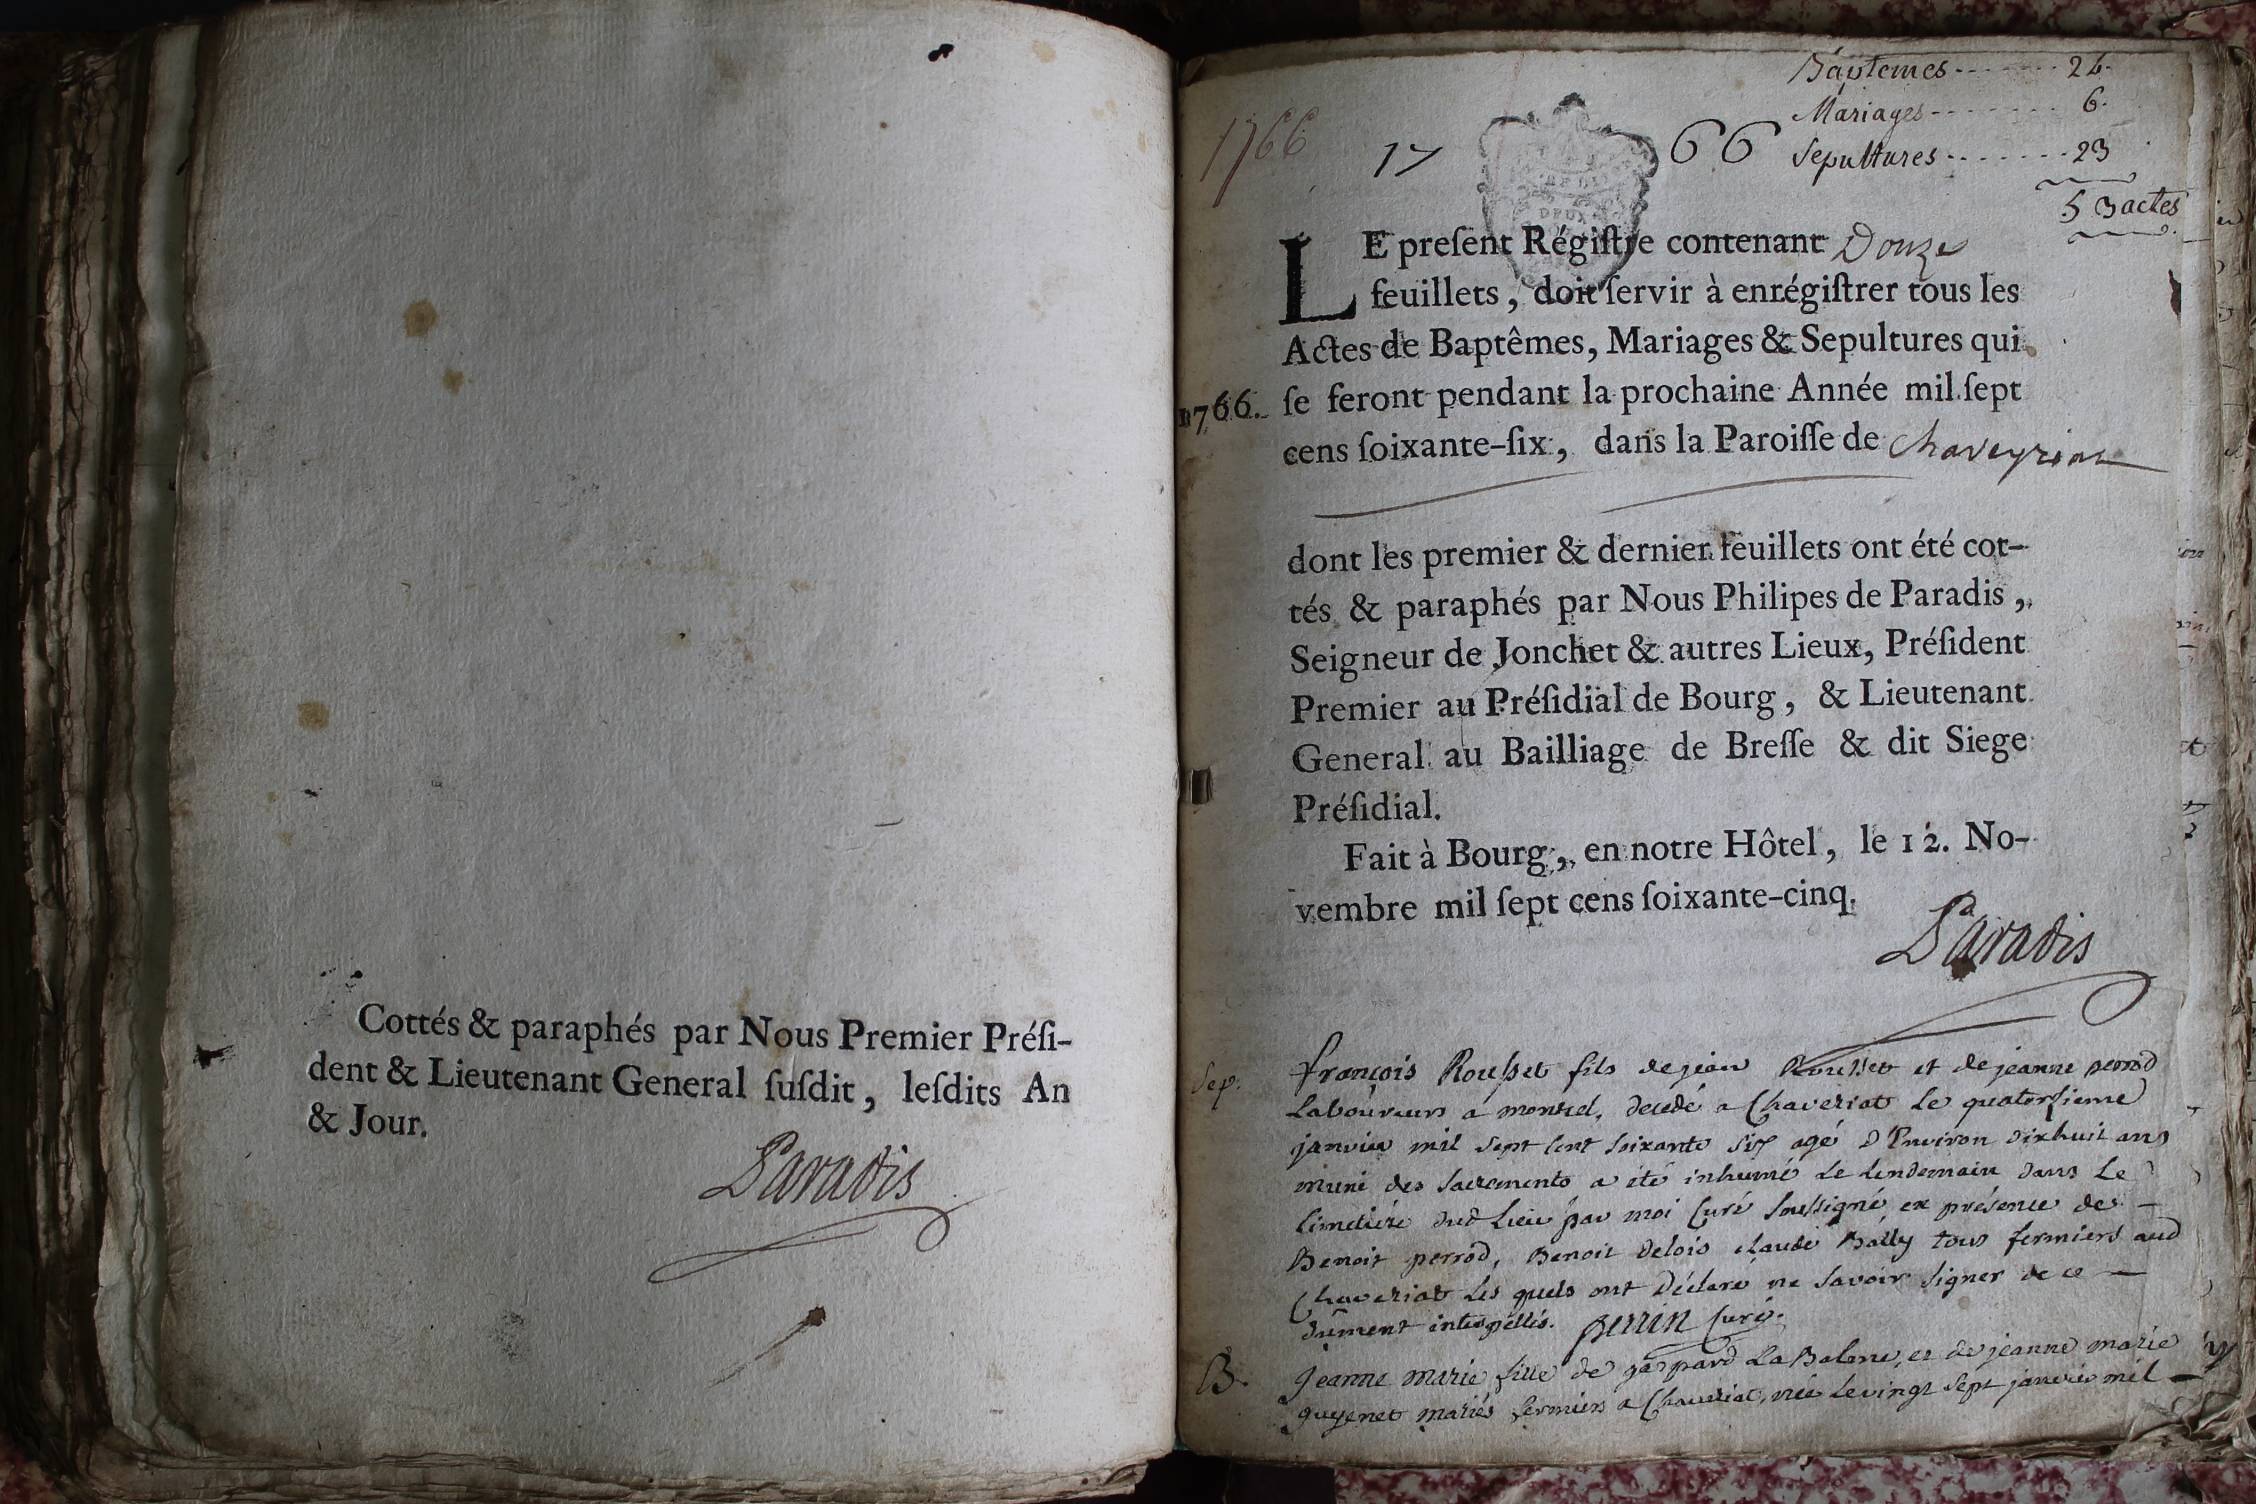 Cottés & paraphés par Nous Premier Préſi-
dent & Lieutenant General ſuſdit, leſdits An
& Jour.
Paradis
Baptemes ------- 24.
Mariages -------- 6.
Sepultures ------- 23
53 actes
1766
17 66
DEUX
LE preſent Régiſtre contenant Douze
feuillets, doit ſervir à enrégiſtrer tous les
Actes de Baptêmes, Mariages & Sepultures qui
1766. ſe feront pendant la prochaine Année mil ſept
cens ſoixante-ſix, dans la Paroiſſe de Chaveyriat
dont les premier & dernier feuillets ont été cot-
tés & paraphés par Nous Philipes de Paradis,
Seigneur de Jonchet & autres Lieux, Préſident
Premier au Préſidial de Bourg, & Lieutenant
General au Bailliage de Breſſe & dit Siege
Préſidial.
Fait à Bourg, en notre Hôtel, le 12. No-
vembre mil ſept cens ſoixante-cinq.
Paradis
Sep. françois Rousset fils de jean Rousset et de jeanne perrod
Laboureurs a montcel, decedé a Chaveriat Le quatorsieme
janvier mil sept cent soixante six agé d'Environ dixhuit ans
muni des sacrements a été inhumé Le Lendemain dans Le
Cimetiére dud Lieu par moi Curé soussigné en présence de
Benoit perrod, Benoit Delois claude Bally tous fermiers aud
Chaveriat Les quels ont Déclaré ne savoir signer de ce
dûment interpellés. perrin Curé.
B. jeanne marie fille de gaspard La Balme, et de jeanne marie
guyenet mariés fermiers a Chaveriat, née le vingt sept janvier mil